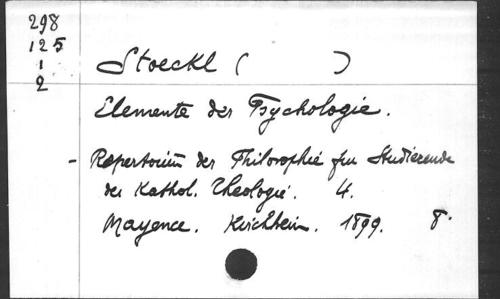 298
125
1
2
Stoeckl ( )
Elemente der Psychologie.
- Repertorium der Philosophie für Studierende
der Kathol. Theologie. 4.
Mayence. Kirchheim. 1899. 8°